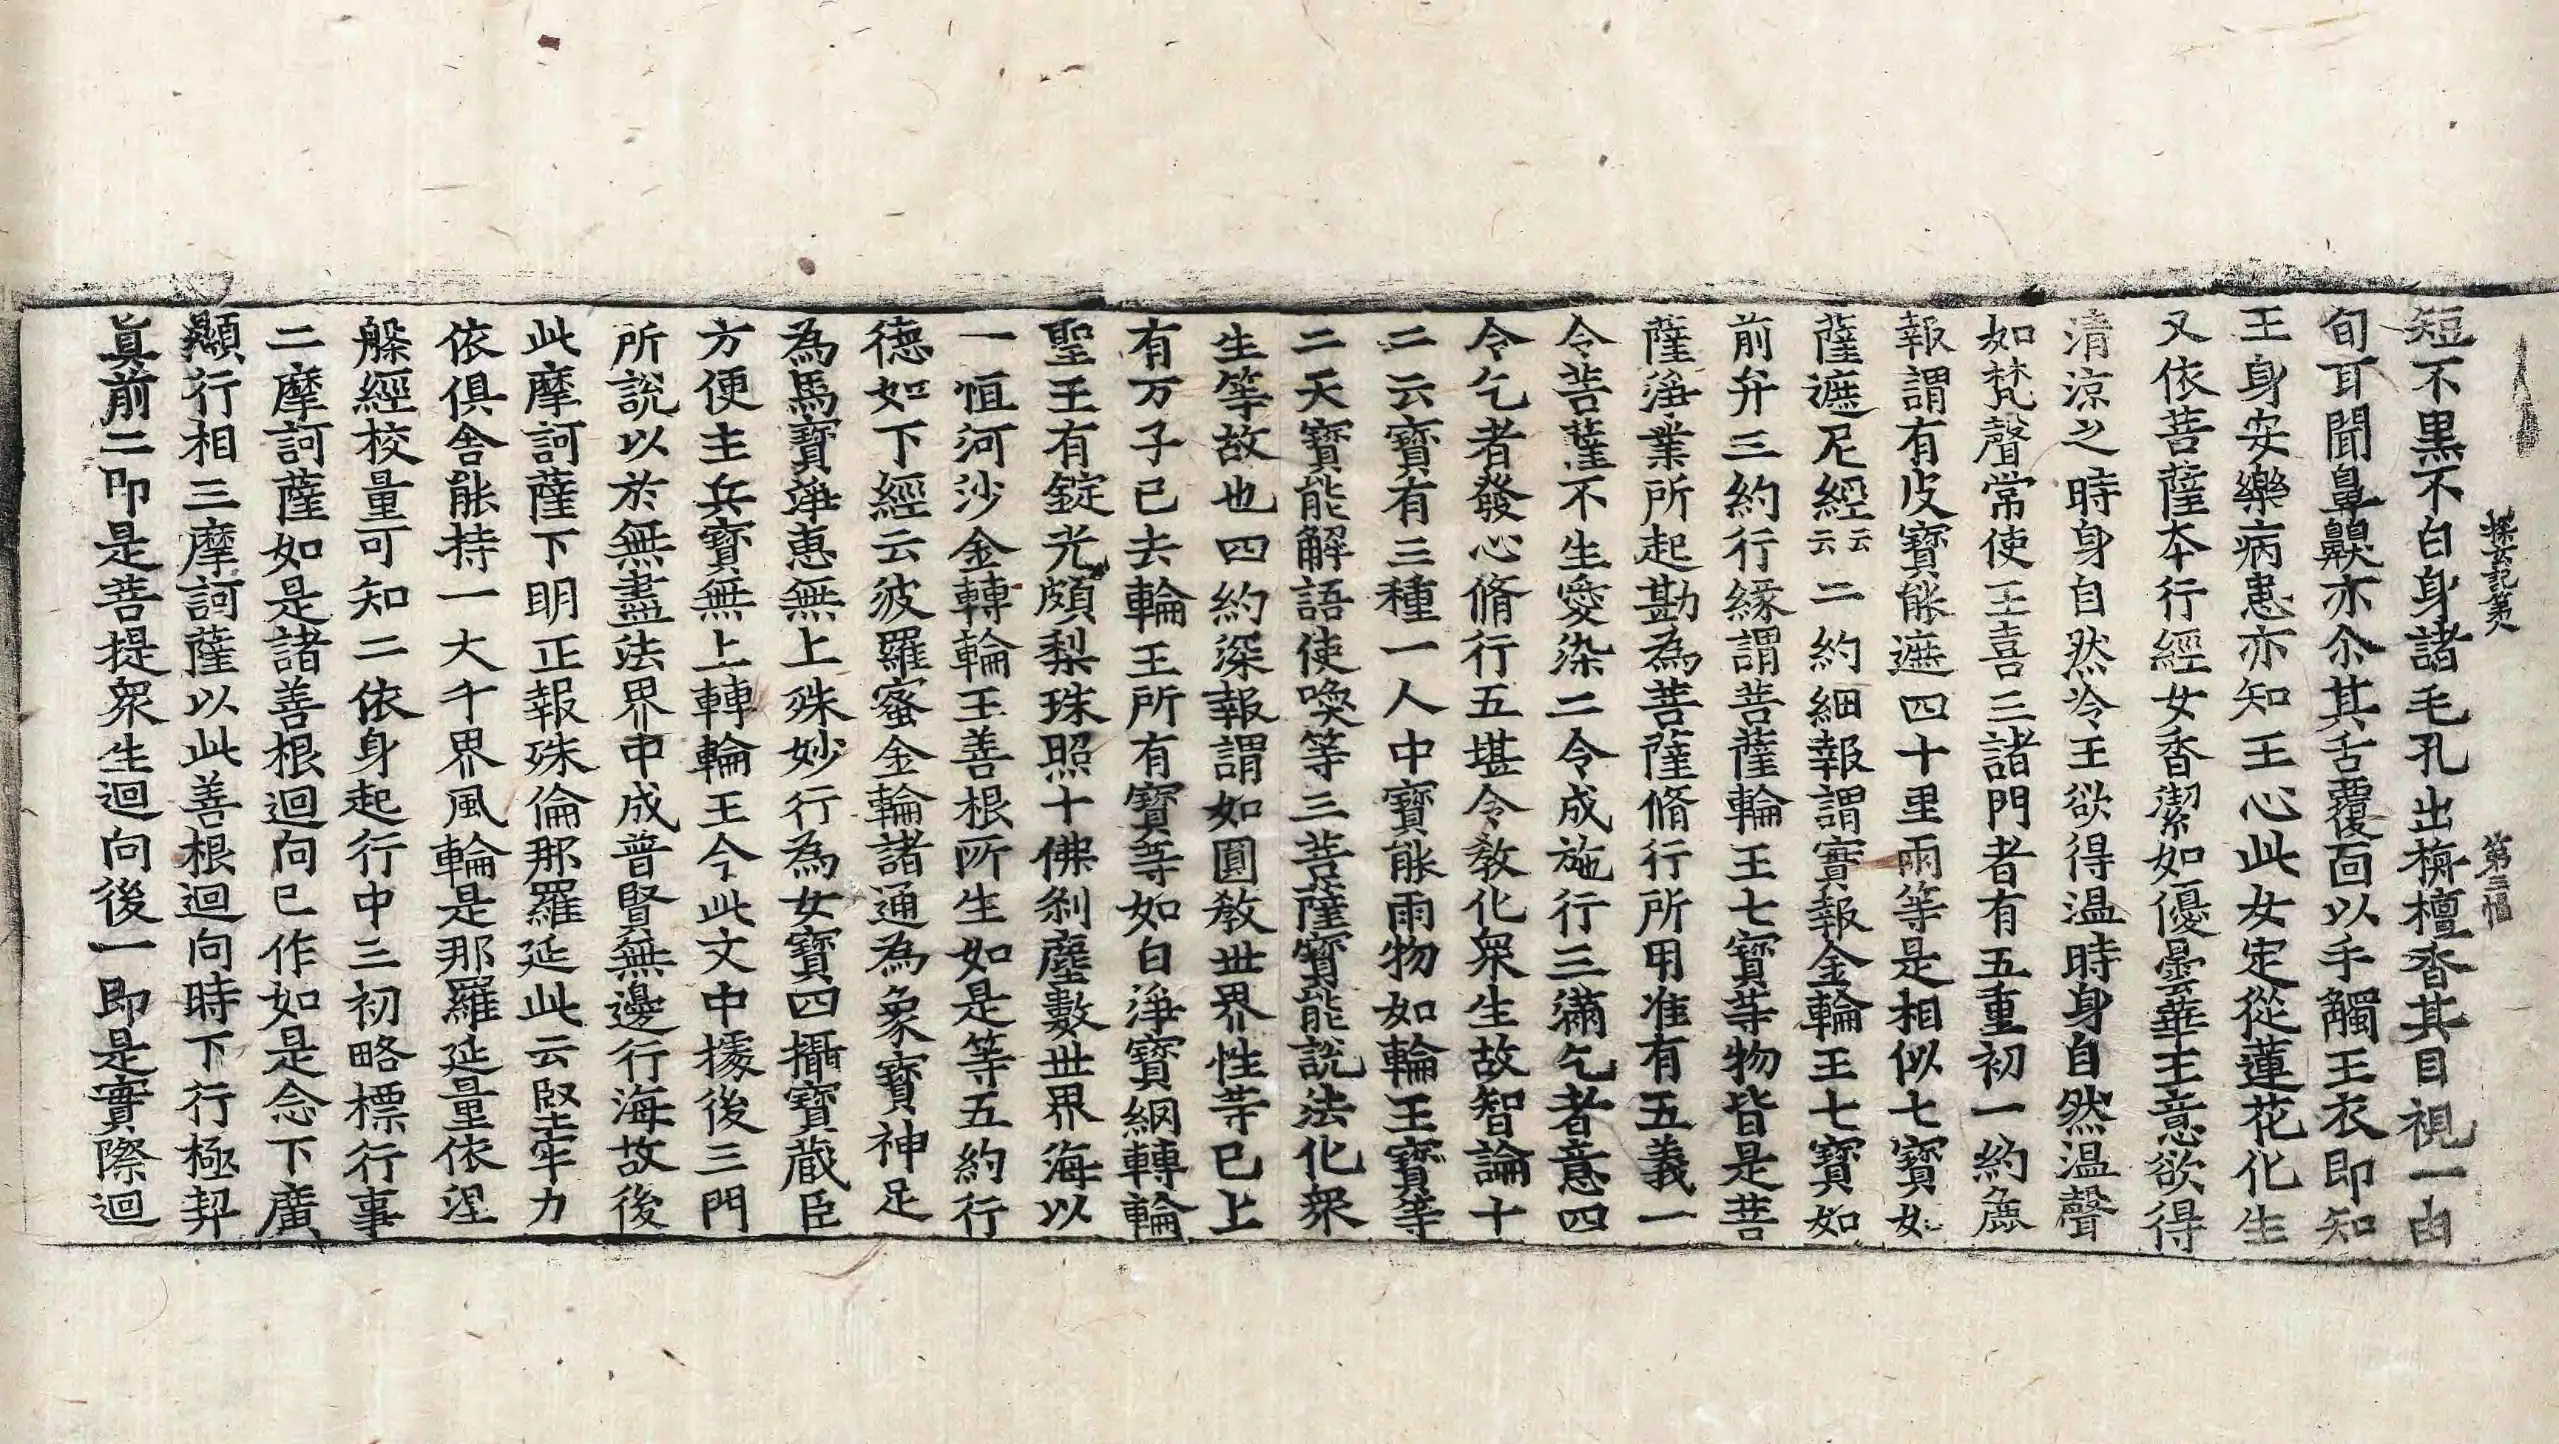 探玄記第八　第三幅
短不黒不白身諸毛孔出栴檀香其目視一由
旬耳聞鼻齅亦尒其舌覆面以手觸王衣即知
王身安樂病患亦知王心此女定從蓮花化生
又依菩薩本行經女香潔如優曇華王意欲得
清涼之時身自然冷王欲得温時身自然温聲
如梵聲常使王喜三諸門者有五重初一約麁
報謂有皮寶能遮四十里雨等是相似七寶如
薩遮尼經云云二約細報謂實報金輪王七寶如
前弁三約行縁謂菩薩輪王七寶等物皆是菩
薩淨業所起勘為菩薩脩行所用准有五義一
令菩薩不生愛染二令成施行三滿乞者意四
令乞者發心脩行五堪令教化衆生故智論十
二云寶有三種一人中寶能雨物如輪王寶等
二天寶能解語使喚等三菩薩寶能說法化衆
生等故也四約深報謂如圓教世界性等已上
有万子已去輪王所有寶等如白淨寶網轉輪
聖王有錠光頗梨珠照十佛剎塵數世界海以
一恒河沙金轉輪王善根所生如是等五約行
德如下經云波羅蜜金輪諸通為象寶神足
為馬寶淨惠無上殊妙行為女寶四攝寶蔵臣
方便主兵寶無上轉輪王今此文中據後三門
所說以於無盡法界中成普賢無邊行海故後
此摩訶薩下明正報殊倫那羅延此云堅牢力
依俱舍能持一大千界風輪是那羅延量依涅
槃經校量可知二依身起行中三初略標行事
二摩訶薩如是諸善根迴向已作如是念下廣
顯行相三摩訶薩以此善根迴向時下行極契
真前二即是菩提衆生迴向後一即是實際迴